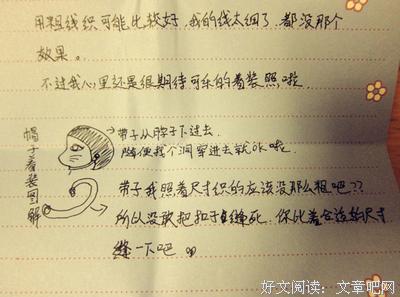 用粗线织可能比较好,我的线太细了,都没那个
效果。
不过我心里还是很期待可乐的着装照啦
帽子着装图解
带子从脖子下过去
随便找个洞穿进去就ok啦
带子我照着尺寸织的应该没那么粗吧??
所以没敢把扣子缝死,你比着合适的尺寸
缝一下吧
好文阅读:文章吧网